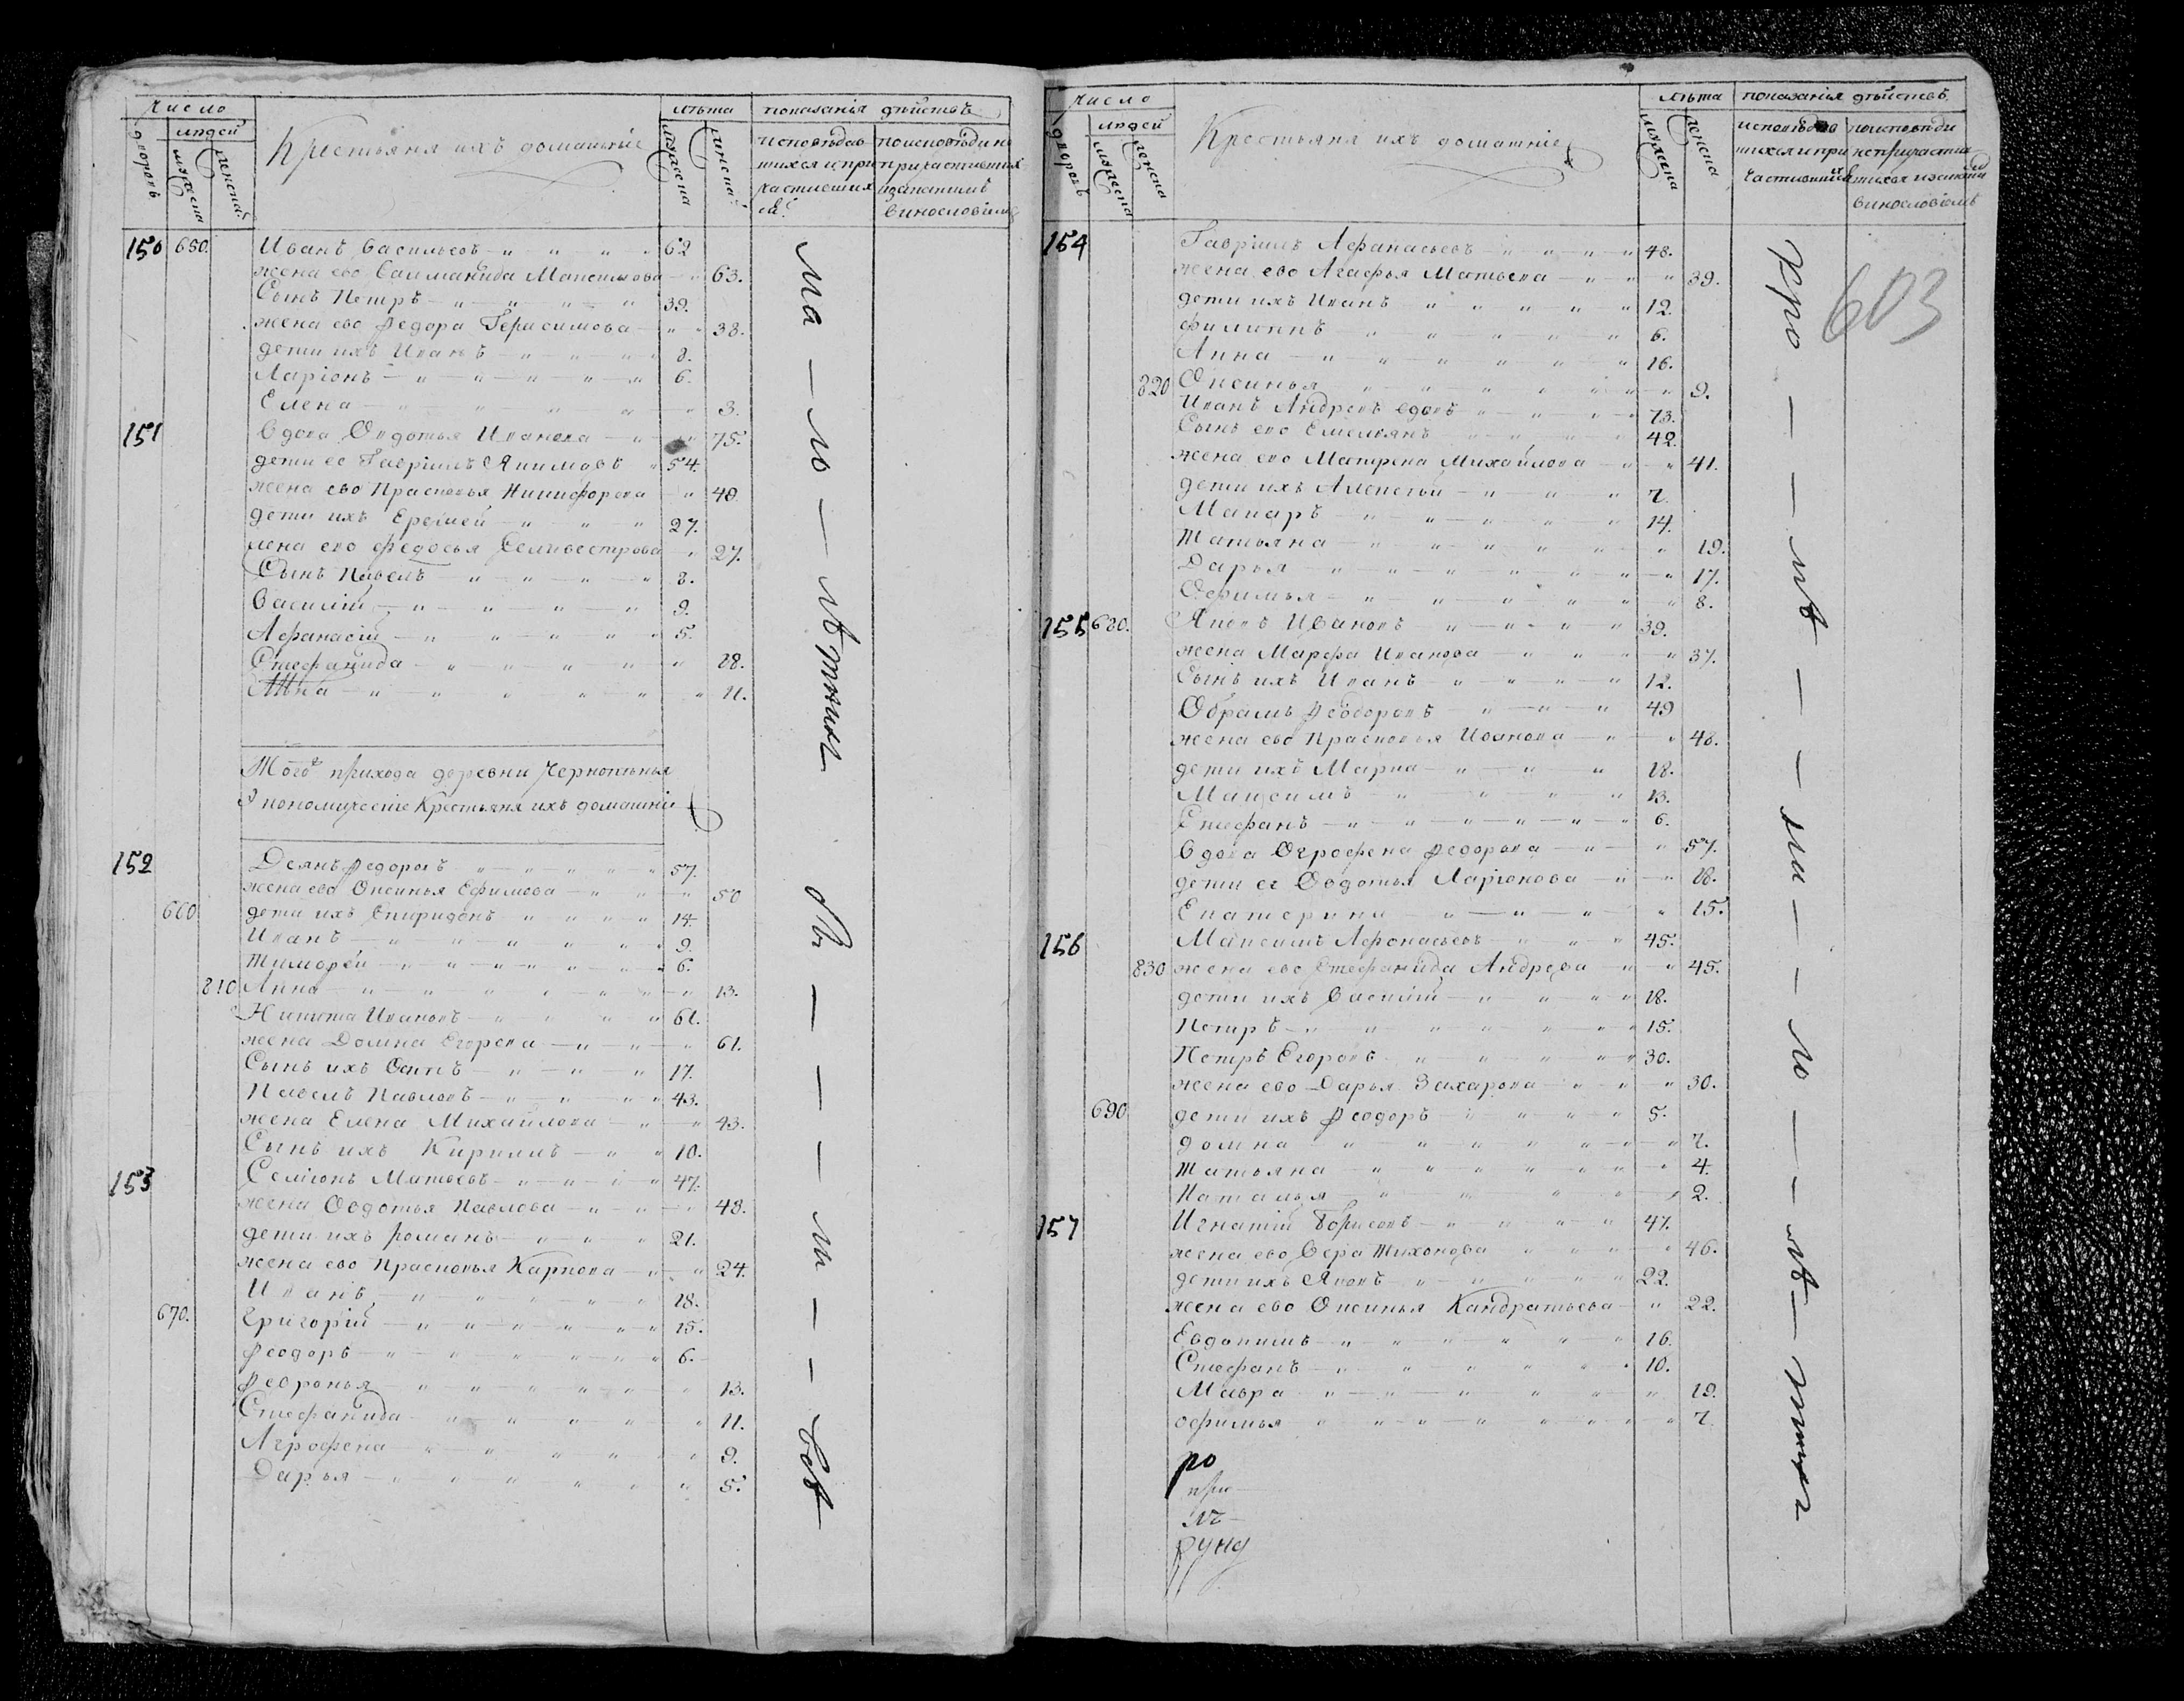 Число
людей
дворовъ
мужеска
женска
Крестьяня ихъ домашніе
лѣта
мужеска
женска
показанія дѣйствъ
исповѣдав
шихся и при
частивших
ся
поисповѣди не
причастивших
150 650. Иванъ Васильевъ 62
жена ево Саиманида Максимова 63.
Сынъ Петръ 39.
жена ево Федора Герасимова 38.
дети ихъ Иванъ 8.
Ларіонъ 6.
Елена 3.
151 Вдова Овдотья Иванова 75.
дети ее Гавріилъ Якимовъ 54.
жена ево Прасковья Никифорова 40.
дети ихъ Еремей 27.
жена ево Федосья Селивестрова 27.
Сынъ Павелъ 8.
Василій 9.
Афанасій 5.
Стефанида 18.
Анна 11.
Тогоъ прихода деревни
Крестьяня ихъ домашніи
152 Деянъ Федоровъ 57.
жена ево Оксинья Ефимова 50
660 дети ихъ Спиридонъ 14.
Иванъ 9.
Тимофей 6.
810 Анна 13.
Никита Ивановъ 61.
жена Домна Егорова 61.
Сынъ ихъ Осипъ 17.
Павелъ Павловъ 43.
жена Елена Михайлова 43.
Сынъ ихъ Кирилъ 10.
153 Семіонъ Матвевъ 47.
жена Овдотья Павлова 48.
дети ихъ романъ 21.
жена ево Прасковья Карпова 24.
Иванъ 18.
670. Григорій 15.
Феодоръ 6.
Февронья 13.
Стефанида 11.
Агрофена 9.
Дарья 5.
Число
людей
дворовъ
мужеска
женска
Крестьяня ихъ домашніе
лѣта
мужеска
женска
показанія дѣйствъ
603
154 Гавріилъ Афанасьевъ 48.
жена ево Агафья Матвева 39.
дети ихъ Иванъ 12.
Филипъ 6.
Анна 16.
820 Оксинья 9.
Иванъ Андревъ вдовъ 73.
Сынъ ево Емельянъ 42.
жена ево Матрена Михайлова 41.
дети ихъ Алексей 7.
Макаръ 14.
Татьяна 19.
Дарья 17.
Офимья 8.
155 680. Яковъ Ивановъ 39.
жена Марфа Иванова 37.
Сынъ ихъ Иванъ 12.
Обрамъ Феодоровъ 49
жена ево Прасковья Иванова 48.
дети ихъ Марка 18.
Максимъ 13.
Стефанъ 6.
Вдова Огрофена Федорова 57.
дети ее Овдотья Ларіонова 18.
Екатерина 15.
156 Максимъ Афонасьевъ 45.
830 жена ево Стефанида Андрева 45.
дети ихъ Василій 18.
Петръ 15.
Петръ Егоровъ 30.
жена ево Дарья Захарова 30.
690 дети ихъ Феодоръ 5.
домна 7.
Татьяна 4.
Наталья 2.
157 Игнатій Борисовъ 47.
жена ево Вера Тихонова 46.
дети ихъ Яковъ 22.
жена ево Оксинья Кандратьева 22.
Евдокимъ 16.
Стефанъ 10.
Мавра 19.
офимья 7.
ро